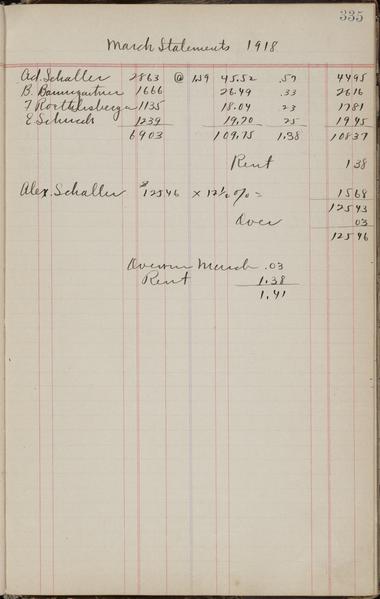 335
March Statements 1918
Ad. Schaller 2863 @ 159 45.52 .57 4495
B. Baumgartner 1666 26.49 .33 2616
F Roethlisberger 1135 18.04 23 1781
E. Schuch 1239 19,70 25 1945
6903 109,75 1,38 10837
Rent 138
Alex. Schaller $12546 x 12½% = 1568
12543
Over 03
12546
Over in March .03
Rent 1.38
1.41